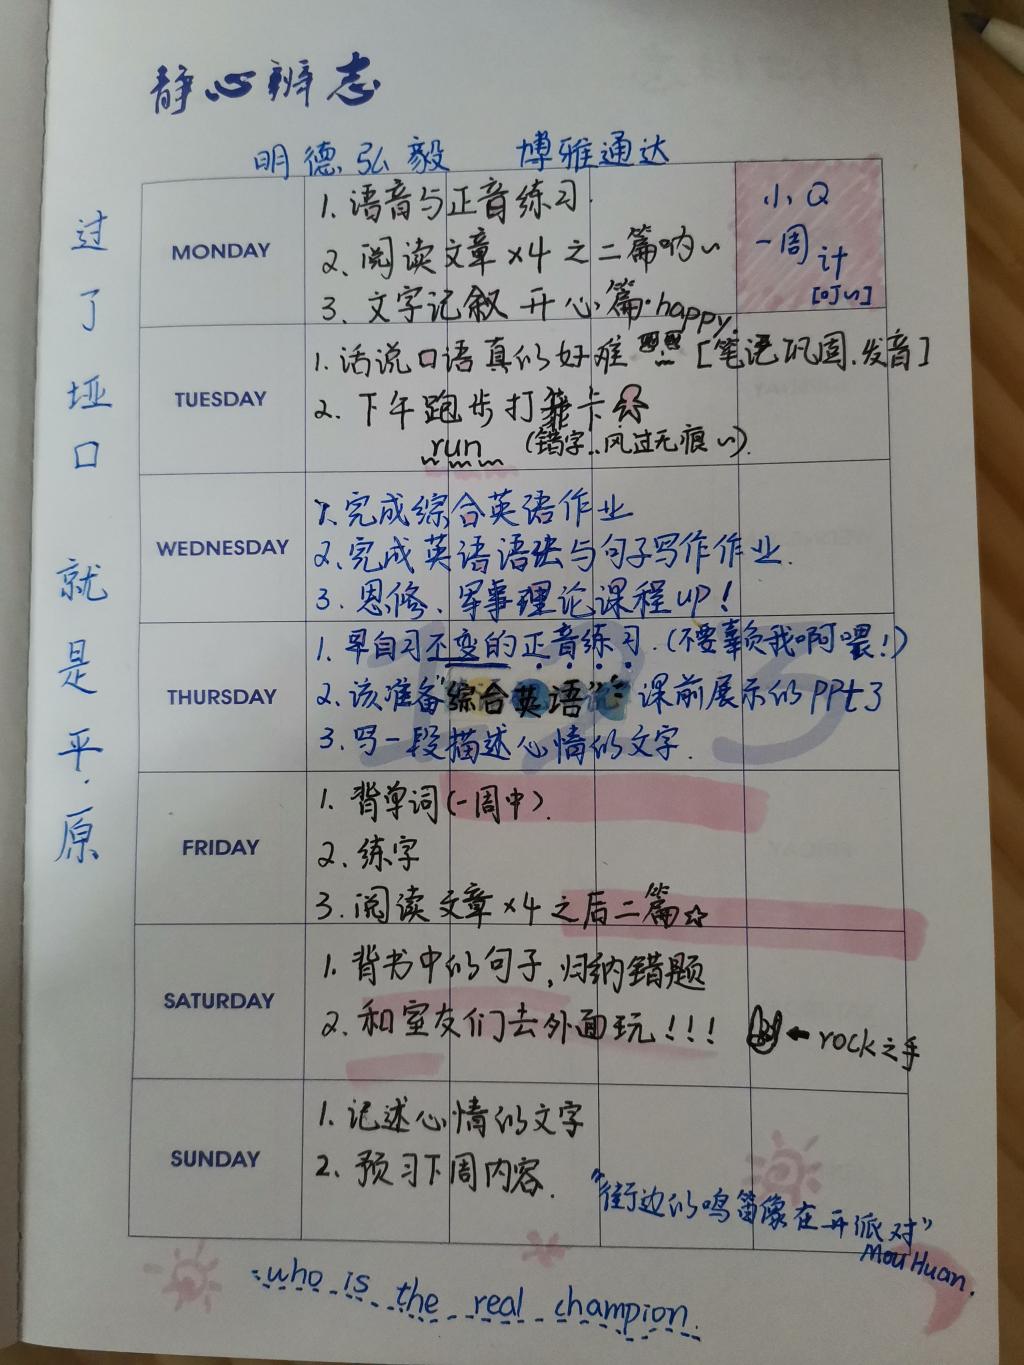 静心辨志
明德弘毅 博雅通达
过了垭口 就是平原
小Q
一周计
[叮~]
MONDAY
1. 语音与正音练习.
2. 阅读文章×4之二篇哟~
3. 文字记叙 开心篇·happy.
TUESDAY
1. 话说口语真的好难 [笔记巩固.发音]
2. 下午跑步打卡
run (错字..风过无痕~).
WEDNESDAY
1. 完成综合英语作业
2. 完成英语语法与句子写作作业.
3. 思修、军事理论课程up!
THURSDAY
1. 早自习不变的正音练习.(不要辜负我啊喂!)
2. 该准备"综合英语"课前展示的PPt了
3. 写一段描述心情的文字.
FRIDAY
1. 背单词(一周中).
2. 练字
3. 阅读文章×4之后二篇☆
SATURDAY
1. 背书中的句子,归纳错题
2. 和室友们去外面玩!!! ← rock之手
SUNDAY
1. 记述心情的文字
2. 预习下周内容.
"街边的鸣笛像在开派对"
Mou Huan.
who is the real champion.